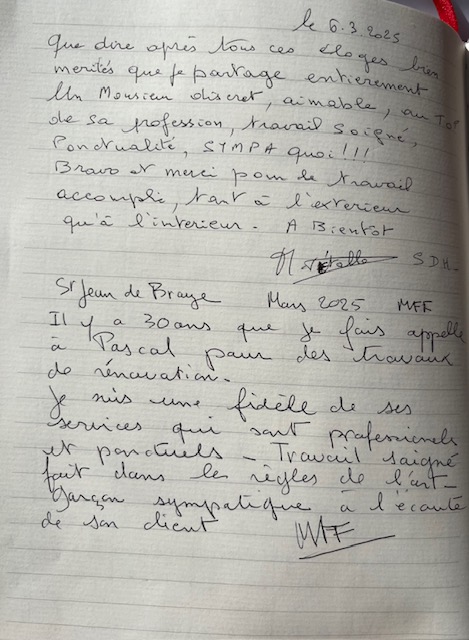 le 6.3.2025
Que dire après tous ces éloges bien
merités que je partage entierement
Un Monsieur discret, aimable, au TOP
de sa profession, travail soigné,
Ponctualité, SYMPA quoi!!!
Bravo et merci pour le travail
accompli, tant à l'exterieur
qu'à l'interieur. A Bientot
S.D.H.
St Jean de Braye Mars 2025 MFF
Il y a 30 ans que je fais appelle
à Pascal pour des travaux
de rénovation.
Je suis une fidèle de ses
services qui sont professionels
et ponctuels - Travail soigné
fait dans les règles de l'art -
Garçon sympatique à l'écoute
de son client
MFF